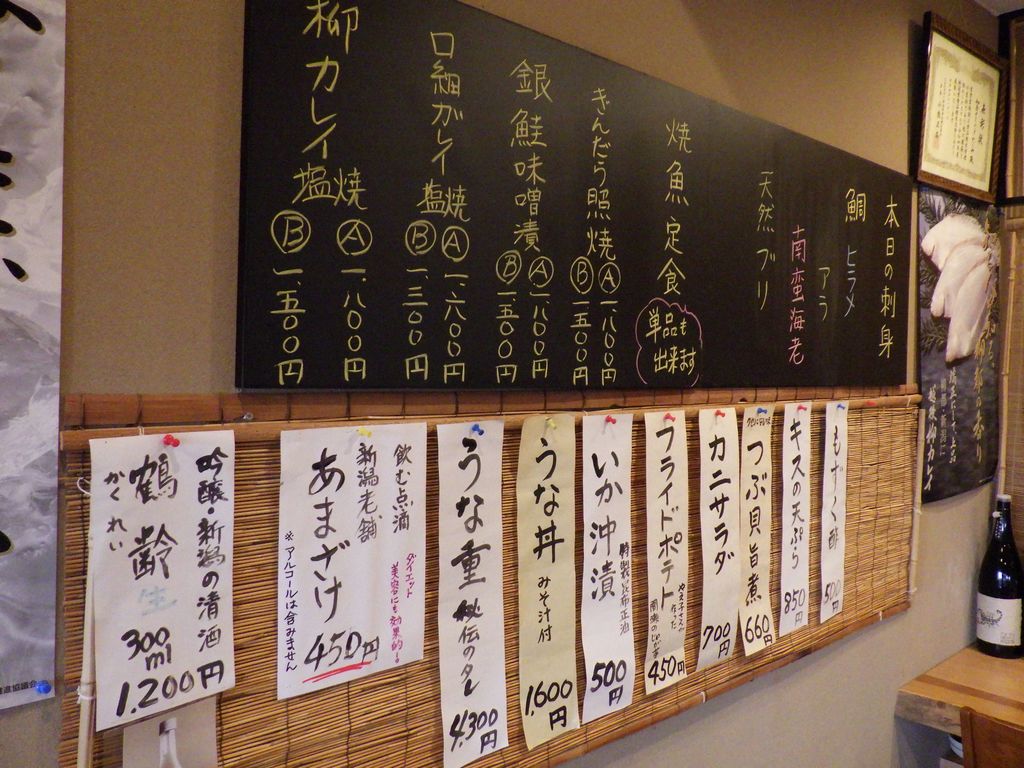 本日の刺身
鯛 ヒラメ
アラ
南蛮海老
天然ブリ
焼魚定食
単品も
出来ます
きんだら照焼 Ⓐ一、八〇〇円
Ⓑ一、五〇〇円
銀鮭味噌漬 Ⓐ一、八〇〇円
Ⓑ一、五〇〇円
口細ガレイ塩焼 Ⓐ一、六〇〇円
Ⓑ一、三〇〇円
柳カレイ塩焼 Ⓐ一、八〇〇円
Ⓑ一、五〇〇円
もずく酢
500円
キスの天ぷら
850円
つぶ貝旨煮
660円
カニサラダ
700円
フライドポテト
450円
いか沖漬
500円
うな丼
みそ汁付
1,600円
うな重
秘伝のタレ
4,300円
飲む点滴
ダイエット
美容にも効果的!
新潟老舗
あまざけ
450円
※アルコールは含みません
吟醸・新潟の清酒
鶴齢 生
かくれい
300ml
1,200円